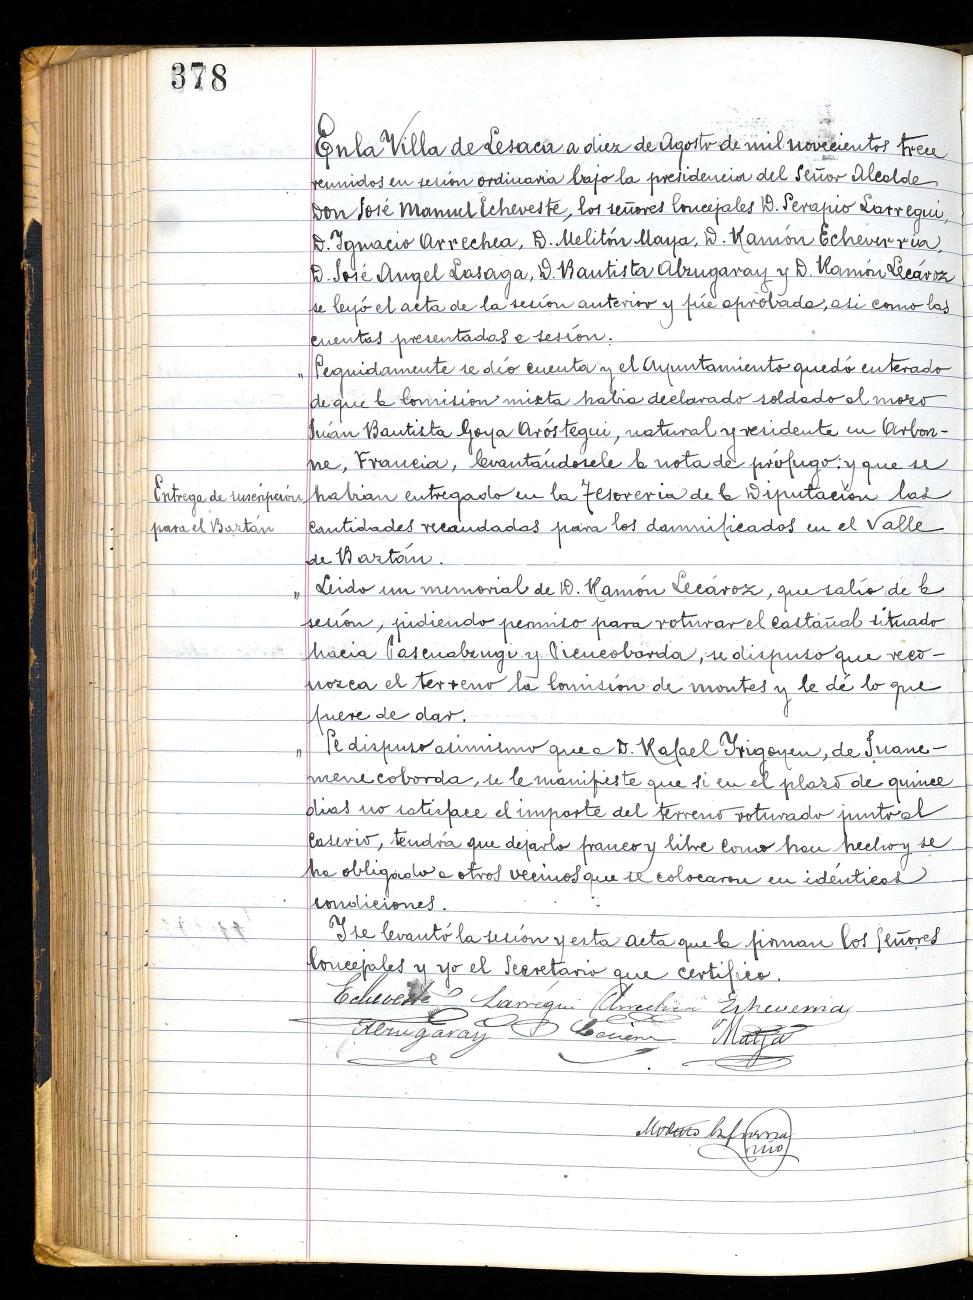 378
En la Villa de Lesaca a diez de Agosto de mil novecientos trece
reunidos en sesión ordinaria bajo la presidencia del Señor Alcalde
Don José Manuel Echeveste, los señores Concejales D. Serapio Larregui,
D. Ignacio Arrechea, D. Melitón Maya, D. Ramón Echeverria,
D. José Angel Lasaga, D. Bautista Alzugaray y D. Ramón Lecároz
se leyó el acta de la sesión anterior y fué aprobada, asi como las
cuentas presentadas a sesión.
„ Seguidamente se dió cuenta y el Ayuntamiento quedó enterado
de que la Comisión mixta habia declarado soldado al mozo
Juán Bautista Goya Aróstegui, natural y residente en Arbon-
ne, Francia, levantándosele la nota de prófugo: y que se
Entrega de suscripción
para el Baztán
habian entregado en la Tesoreria de la Diputación las
cantidades recaudadas para los damnificados en el Valle
de Baztán.
„ Leido un memorial de D. Ramón Lecároz, que salió de la
sesión, pidiendo permiso para roturar el castañal situado
hacia y , se dispuso que reco-
nozca el terreno la Comisión de montes y le dé lo que
fuere de dar.
„ Se dispuso asimismo que a D. Rafael Irigoyen, de Juane-
menecoborda, se le manifieste que si en el plazo de quince
dias no satisface el importe del terreno roturado junto al
caserio, tendrá que dejarlo franco y libre como han hecho y se
ha obligado a otros vecinos que se colocaron en idénticas
condiciones.
Y se levantó la sesión y esta acta que la firman los Señores
Concejales y yo el Secretario que certifico.
Echeveste Larregui Arrechea Echeverria
Alzugaray Maya